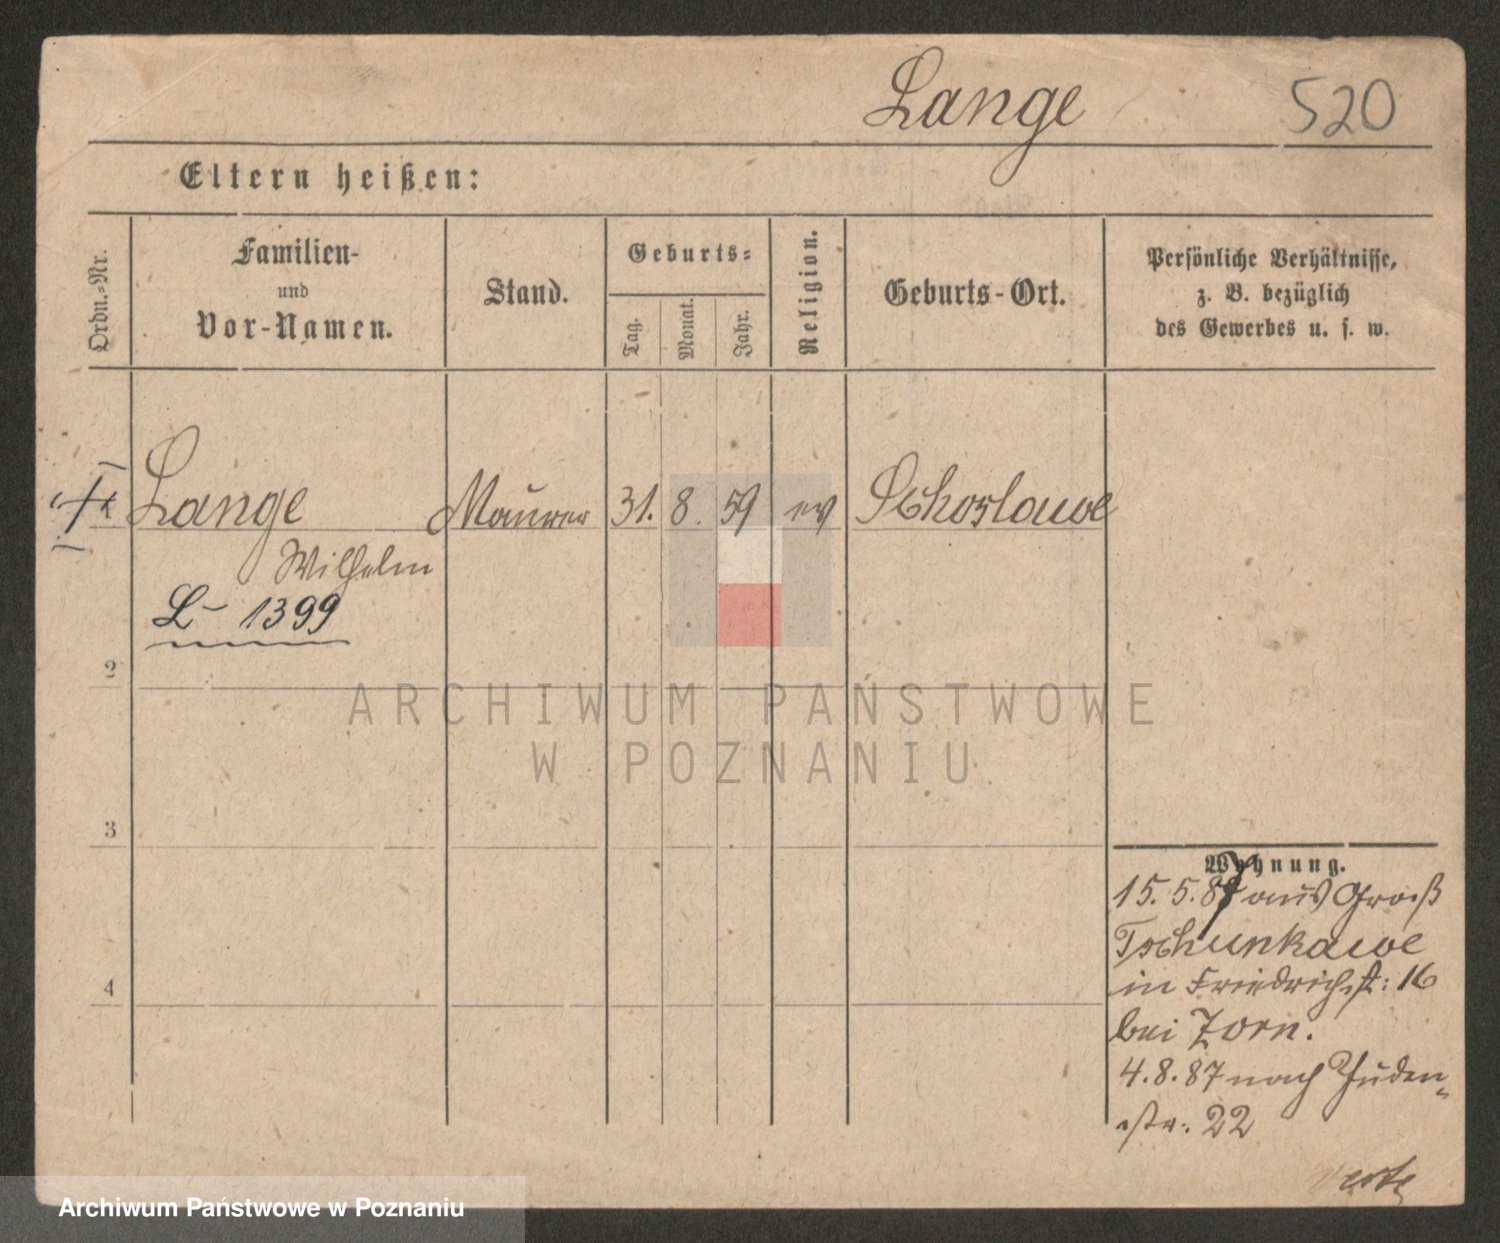 Lange 520
Eltern heißen:
Ordn.-Nr.
Familien-
und
Vor-Namen.
Stand.
Geburts-
Tag.
Monat.
Jahr.
Religion.
Geburts-Ort.
Persönliche Verhältnisse,
z. B. bezüglich
des Gewerbes u. s. w.
Lange Maurer 31. 8. 59 ev
Wilhelm
L- 1399
2
3
4
ARCHIWUM PAŃSTWOWE
W POZNANIU
Wohnung.
15. 5. 87 aus Groß
Tschunkawe
in Friedrichst: 16
bei Zorn.
4. 8. 87 nach Juden-
str: 22
Archiwum Państwowe w Poznaniu